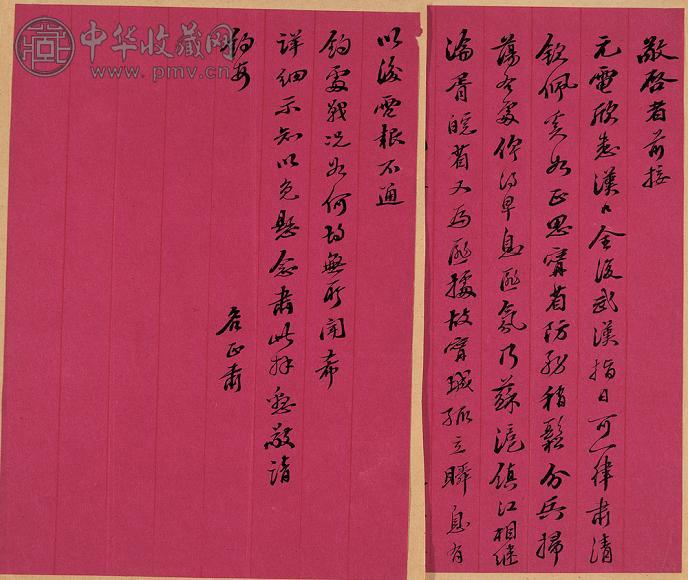 敬啓者前接
元電欣悉漢口全復武漢指日可一律肅清
欽佩奚如正思甯省防務稍鬆分兵掃
蕩各處俾得早息匪氛乃蘇滬鎮江相繼
淪胥皖省又為匪據故甯城孤立瞬息有
以後電報不通
鈞處戰況如何均無所聞希
詳細示知以免懸念肅此拜懇敬請
鈞安
名正肅
中华收藏网
www.pmv.cn